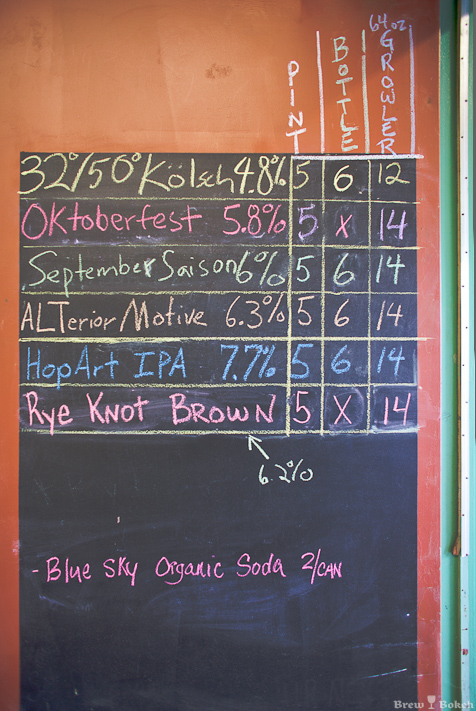 PINT BOTTLE 64oz GROWLER
32°/50° Kölsch 4.8% 5 6 12
OKtoberfest 5.8% 5 X 14
September Saison 6% 5 6 14
ALTerior Motive 6.3% 5 6 14
HopArt IPA 7.7% 5 6 14
Rye Knot Brown 5 X 14
6.2%
- Blue Sky Organic Soda 2/CAN
Brew Bokeh